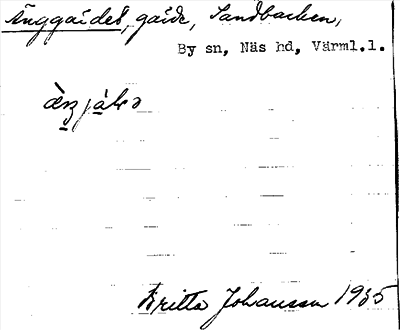 Änggärdet, gärde, Sandbacken,
By sn, Näs hd, Värml.l.
Britta Johansson 1935